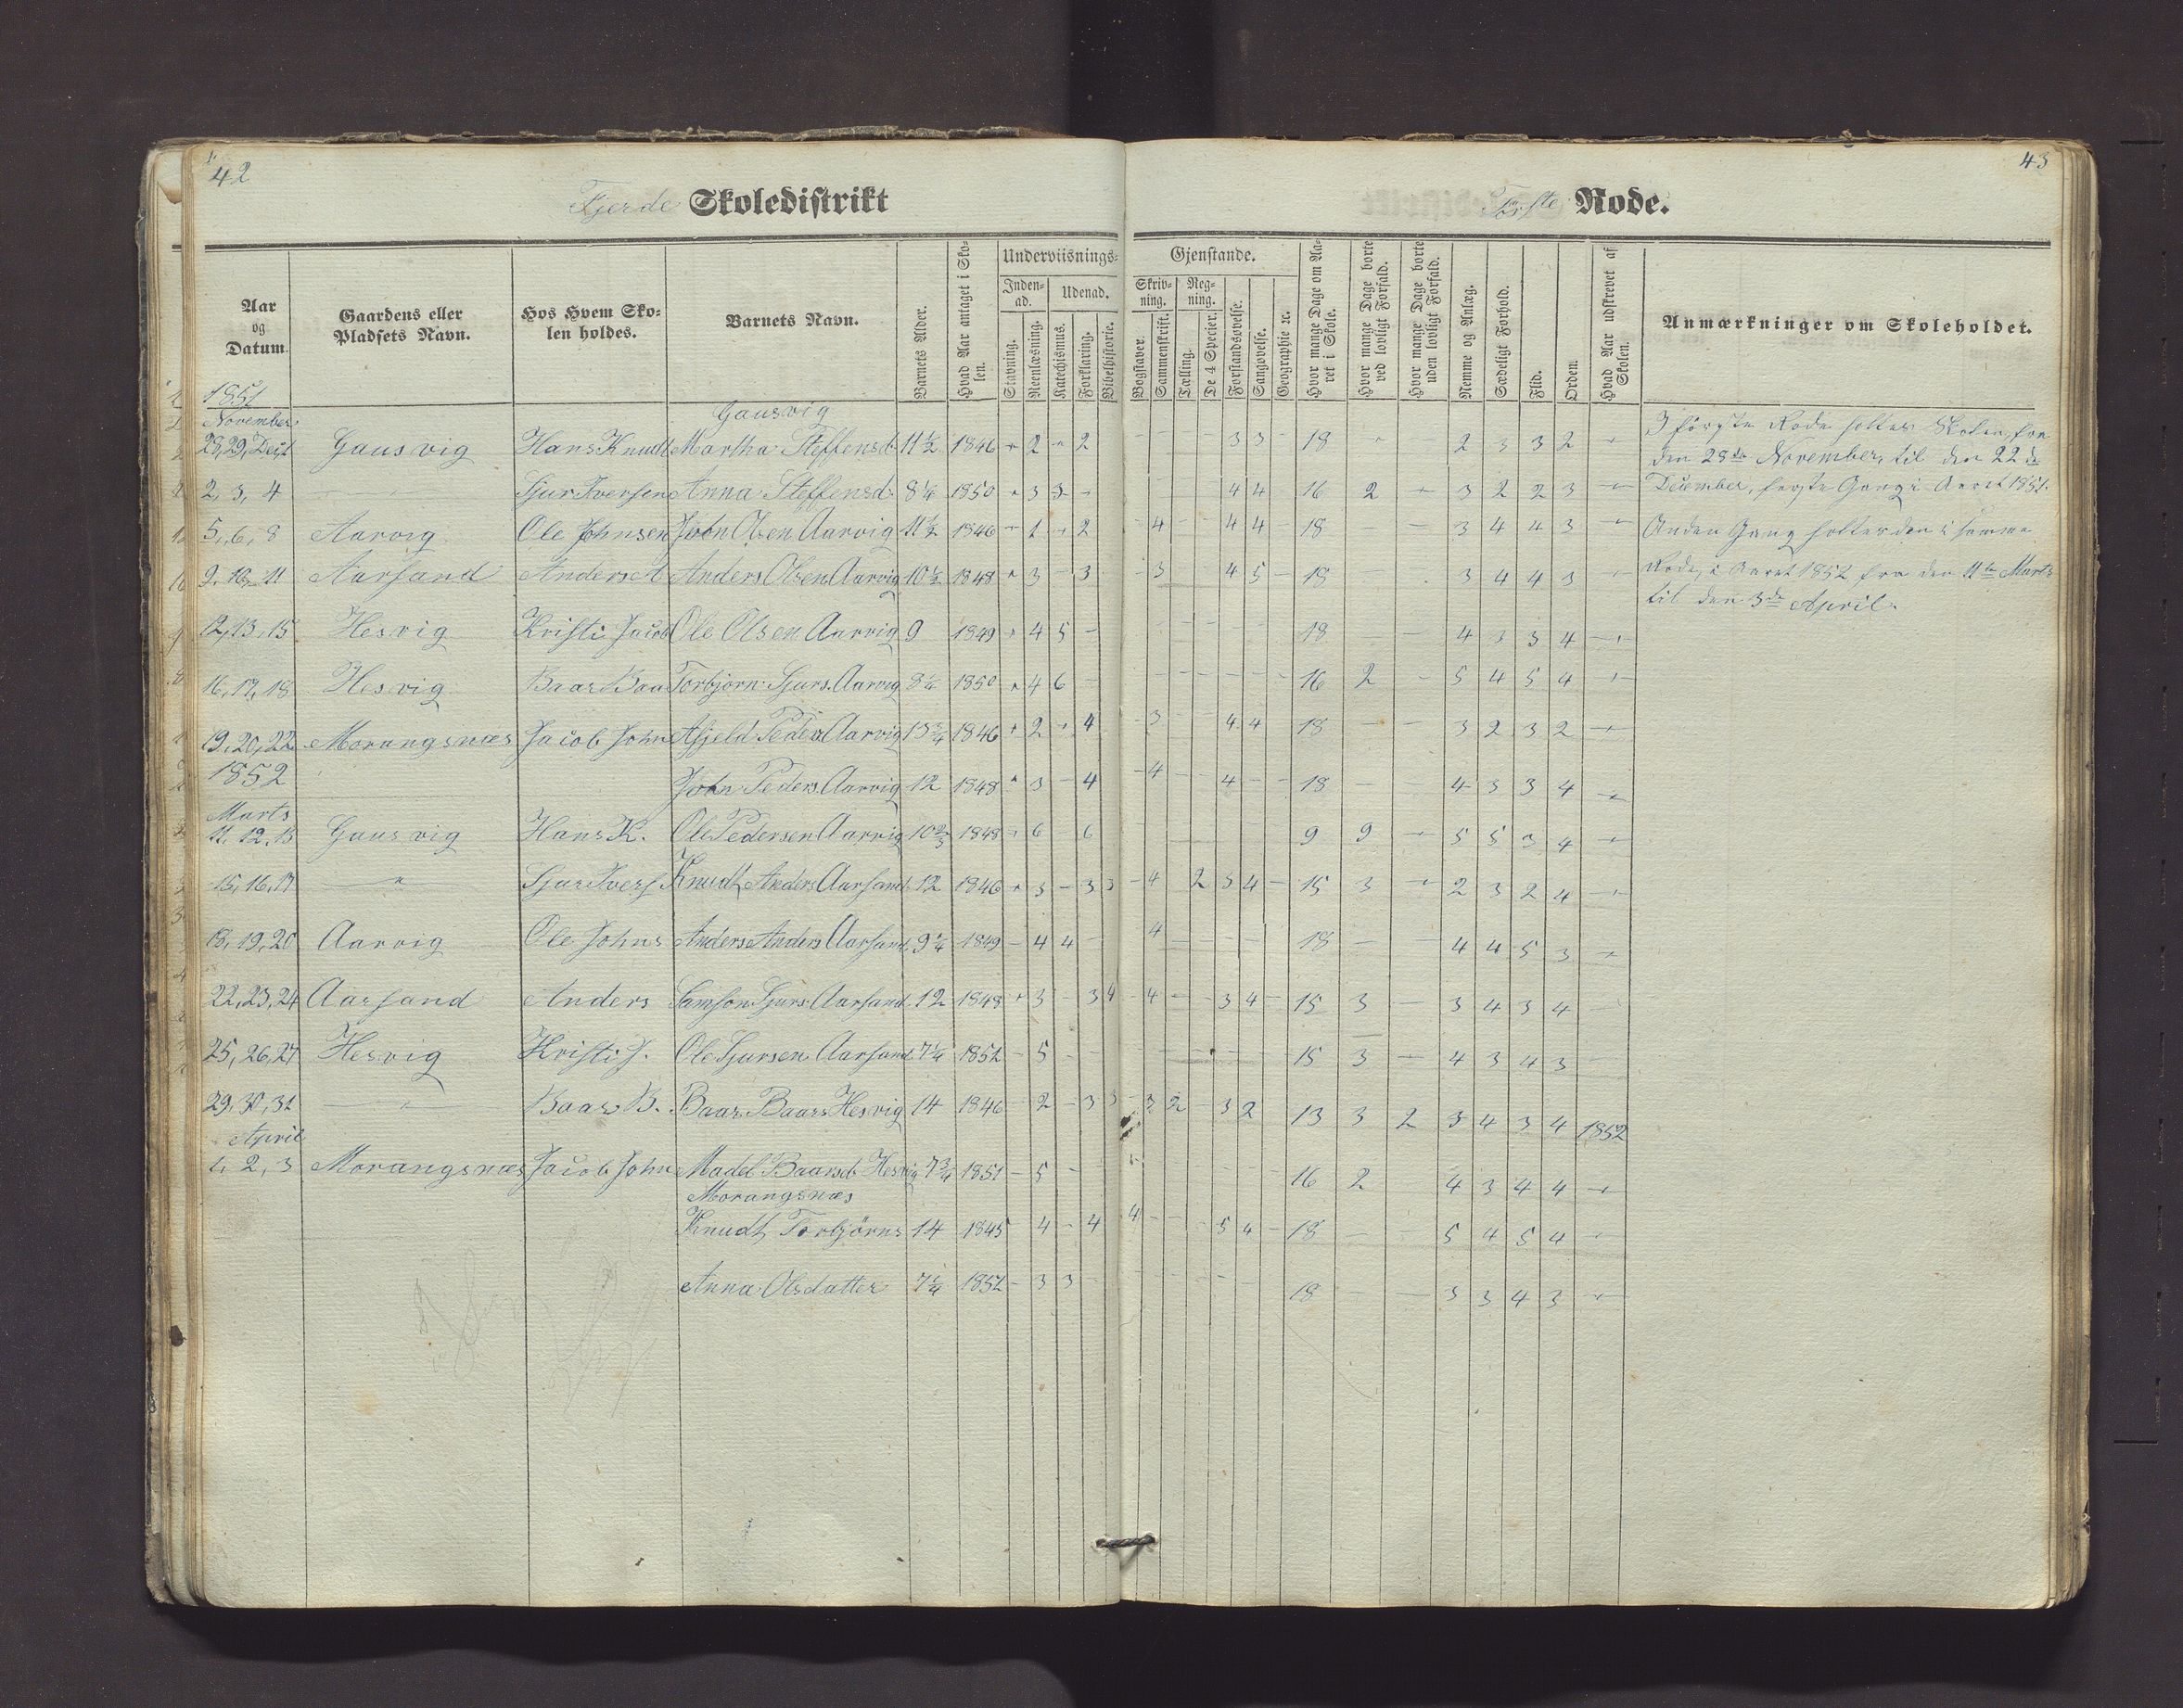 42
43
Fjerde Skoledistrikt
Første Rode.
Aar og Datum.
Gaardens eller Pladsets Navn.
Hos Hvem Skolen holdes.
Barnets Navn.
Barnets Alder.
Hvad Aar antaget i Skolen.
Underviisnings-
Gjenstande.
Indenad.
Udenad.
Skrivning.
Regning.
Stavning.
Reenlæsning.
Katechismus.
Forklaring.
Bibelhistorie.
Bogstaver.
Sammenskrift.
Tælling.
De 4 Specier.
Forstandsøvelse.
Sangøvelse.
Geographie ec.
Hvor mange Dage om Aaret i Skole.
Hvor mange Dage borte ved lovligt Forfald.
Hvor mange Dage borte uden lovligt Forfald.
Nemme og Anlæg.
Sædeligt Forhold.
Flid.
Orden.
Hvad Aar udskrevet af Skolen.
Anmærkninger om Skoleholdet.
1851
November
Gausvig
28, 29, Gausvig Hans Knudt Martha Steffensd. 11½ 1846 - 2 - 2 - - - - 3 3 - 18 - - 2 3 3 2 -
2, 3, 4 - Sjur Iversen Anna Steffensd. 8¼ 1850 - 3 3 - 4 4 16 2 - 3 2 2 3 -
5, 6, 8 Aarvig Ole Johnsen John Olsen Aarvig 11½ 1846 - 1 - 2 - 4 - - 4 4 18 - 3 4 4 3 -
9, 10, 11 Aarsand Anders A Anders Olsen Aarvig 10½ 1848 - 3 - 3 - 3 4 5 - 18 - 3 4 4 3 -
12, 13, 15 Hesvig Kristi Jacob Ole Olsen Aarvig 9 1849 - 4 5 - - - - - 18 - 4 3 3 4 -
16, 17, 18 Hesvig Baar Baa Torbjørn Sjurs. Aarvig 8¼ 1850 - 4 6 - - - - - 16 2 - 5 4 5 4 -
19, 20, 22 Morangsnæs Jacob John Peders Aarvig 13¾ 1846 - 2 - 4 - 3 - - 4 4 18 - - 3 2 3 2 -
1852
John Peders. Aarvig 12 1848 - 3 - 4 - 4 - - 4 - - 18 - 4 3 3 4 -
Marts
11, 12, 13 Gausvig Hans K. Ole Pedersen Aarvig 10⅔ 1848 - 6 - 6 - - - - 9 9 - 5 5 3 4 -
15, 16, 17 - Sjur Ivers Knudt Anders Aarsand 12 1846 - 3 - 3 3 - 4 2 3 4 - 15 3 - 2 3 2 4 -
18, 19, 20 Aarvig Ole Johns Anders Anders Aarsand 9¼ 1849 - 4 4 - 4 - - - - 18 - - 4 4 5 3 -
22, 23, 24 Aarsand Anders Samson Sjurs. Aarsand 12 1848 - 3 - 3 4 - 4 - - 3 4 - 15 3 - 3 4 3 4 -
25, 26, 27 Hesvig Kristi J. Ole Sjursen Aarsand 7¼ 1852 - 5 - - - - - - - 15 3 - 4 3 4 3 -
29, 30, 31 - Baar B. Baar Baars Hesvig 14 1846 - 2 - 3 3 - 3 2 - 3 2 13 3 2 3 4 3 4 1852
April
1, 2, 3 Morangsnæs Jacob John Madel Baarsd. Hesvig 7¾ 1851 - 5 - - 16 2 4 3 4 4 -
Morangsnæs
Knudt Torbjørns 14 1845 4 - 4 4 - - - 5 4 - 18 - - 5 4 5 4 -
Anna Olsdatter 7¼ 1852 - 3 3 - - - - - - 18 - - 3 3 4 3 -
I første Rode holtes Skolen fra
den 28de November til den 22de
December, første Gang i Aaret 1851.
Anden Gang holtes den i samme
Rode, i Aaret 1852 fra den 11te Marts
til den 3de April.